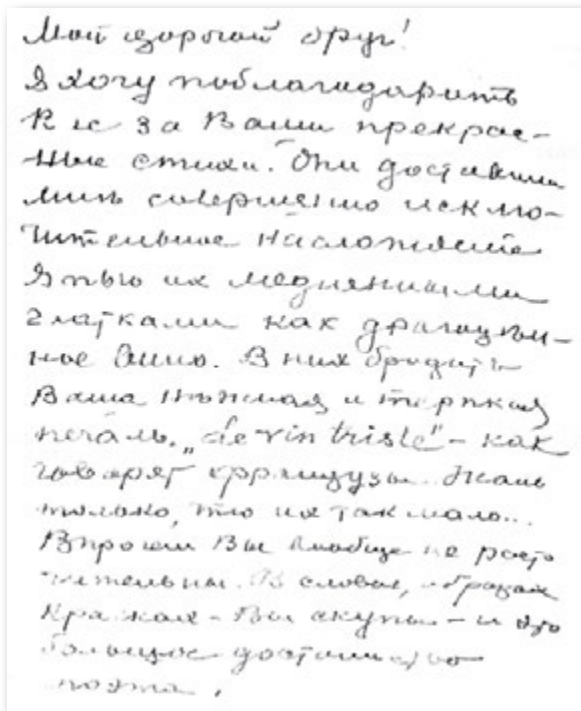 Мой дорогой друг!
Я хочу поблагодарить
Вас за Ваши прекрас-
ные стихи. Они доставили
мнѣ совершенно исклю-
чительное наслажденіе
Я пью их медленными
глотками как драгоцѣн-
ное вино. В них бродитъ
Ваша нѣжная и терпкая
печаль. „Le vin triste" - как
говорят французы. Жаль
только, что их так мало...
Впрочем Вы вообще не расто
чительны. В словах, образах
красках - Вы скупы - и это
большое достоинство
поэта.